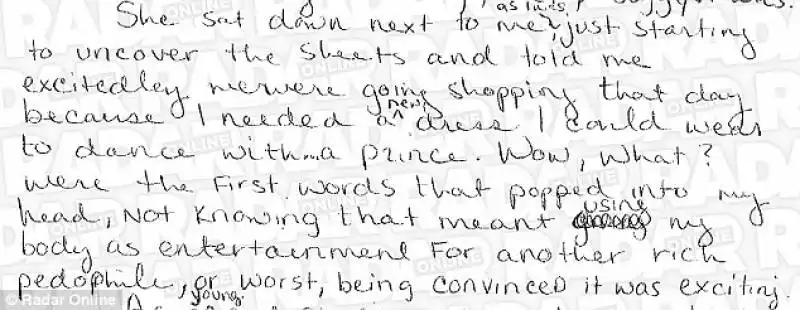 as I
She sat down next to me, just starting
to uncover the sheets and told me
excitedley we were going shopping that day
because I needed a new dress I could wear
to dance with...a prince. Wow, what?
were the first words that popped into my
head, not knowing that meant using my
body as entertainment for another rich
pedophile, or worst, being convinced it was exciting.
young
© Radar Online
RADAR ONLINE